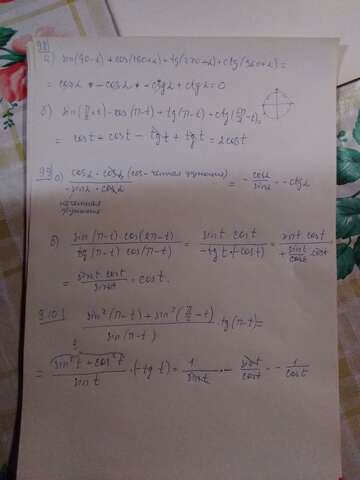 9.8
а) sin(90-α) + cos(180+α) + tg(270+α) + ctg(360+α) =
= cosα - cosα - ctgα + ctgα = 0
б) sin(π/2+t) - cos(π-t) + tg(π-t) + ctg(5π/2-t) =
= cost + cost - tgt + tgt = 2cost
9.9 а) cosα · cosα (cos-четная функция) / -sinα · cosα = - cosα/sinα = -ctgα
нечетная
функция
б) sin(π-t) cos(2π-t) / tg(π-t) cos(π-t) = sint · cost / -tgt(-cost) = sint · cost / + sint/cost · cost =
= sint · cost / sint = cost.
9.10 sin²(π-t) + sin²(π/2-t) / sin(π-t) · tg(π-t) =
= sin²t + cos²t / sint · (-tgt) = 1/sint · - sint/cost = - 1/cost